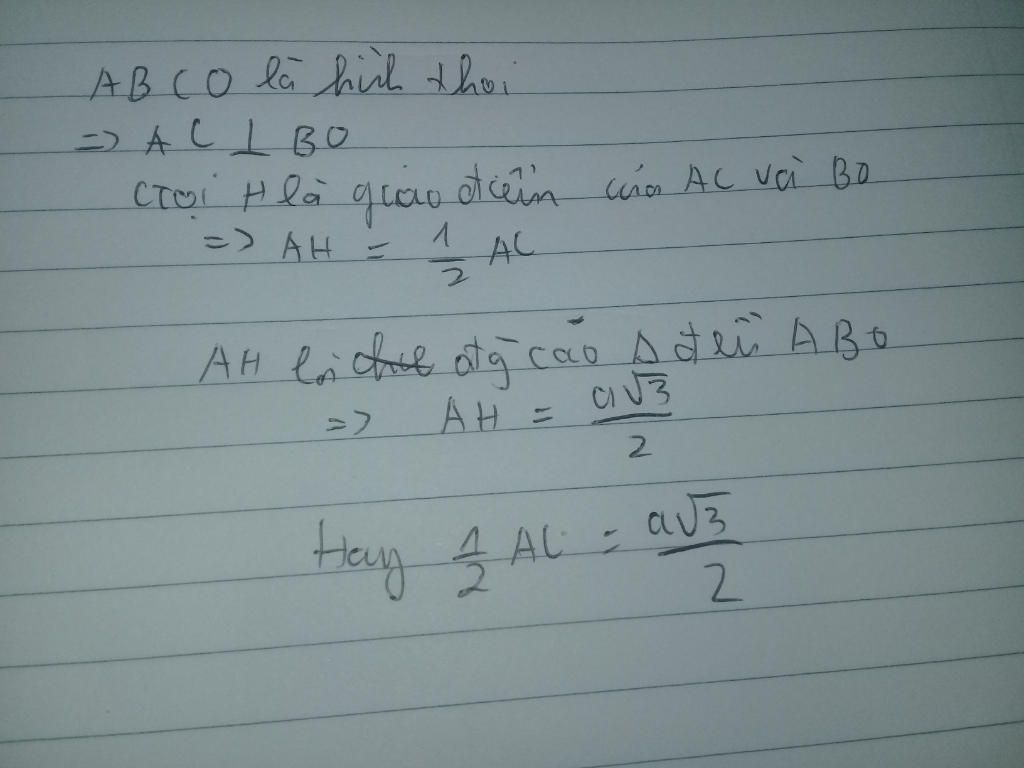 ABCO là hình thoi
=> AC ⊥ BO
Gọi H là giao điểm của AC và BO
=> AH = 1/2 AC
AH là đg cao Δ đều ABO
=> AH = a√3/2
Hay 1/2 AC = a√3/2